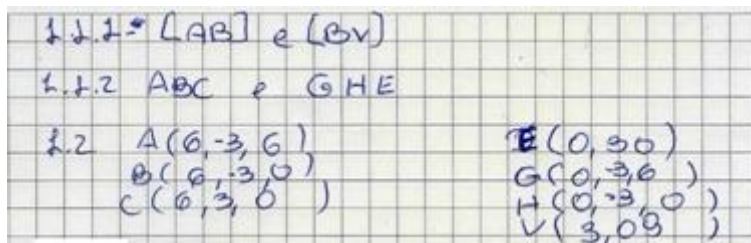 1.1.1- [AB] e [BV]
1.1.2 ABC e GHE
1.2 A(6,-3,6) E(0,30)
B(6,-3,0) G(0,-3,6)
C(6,3,0) H(0,-3,0)
V(3,09)